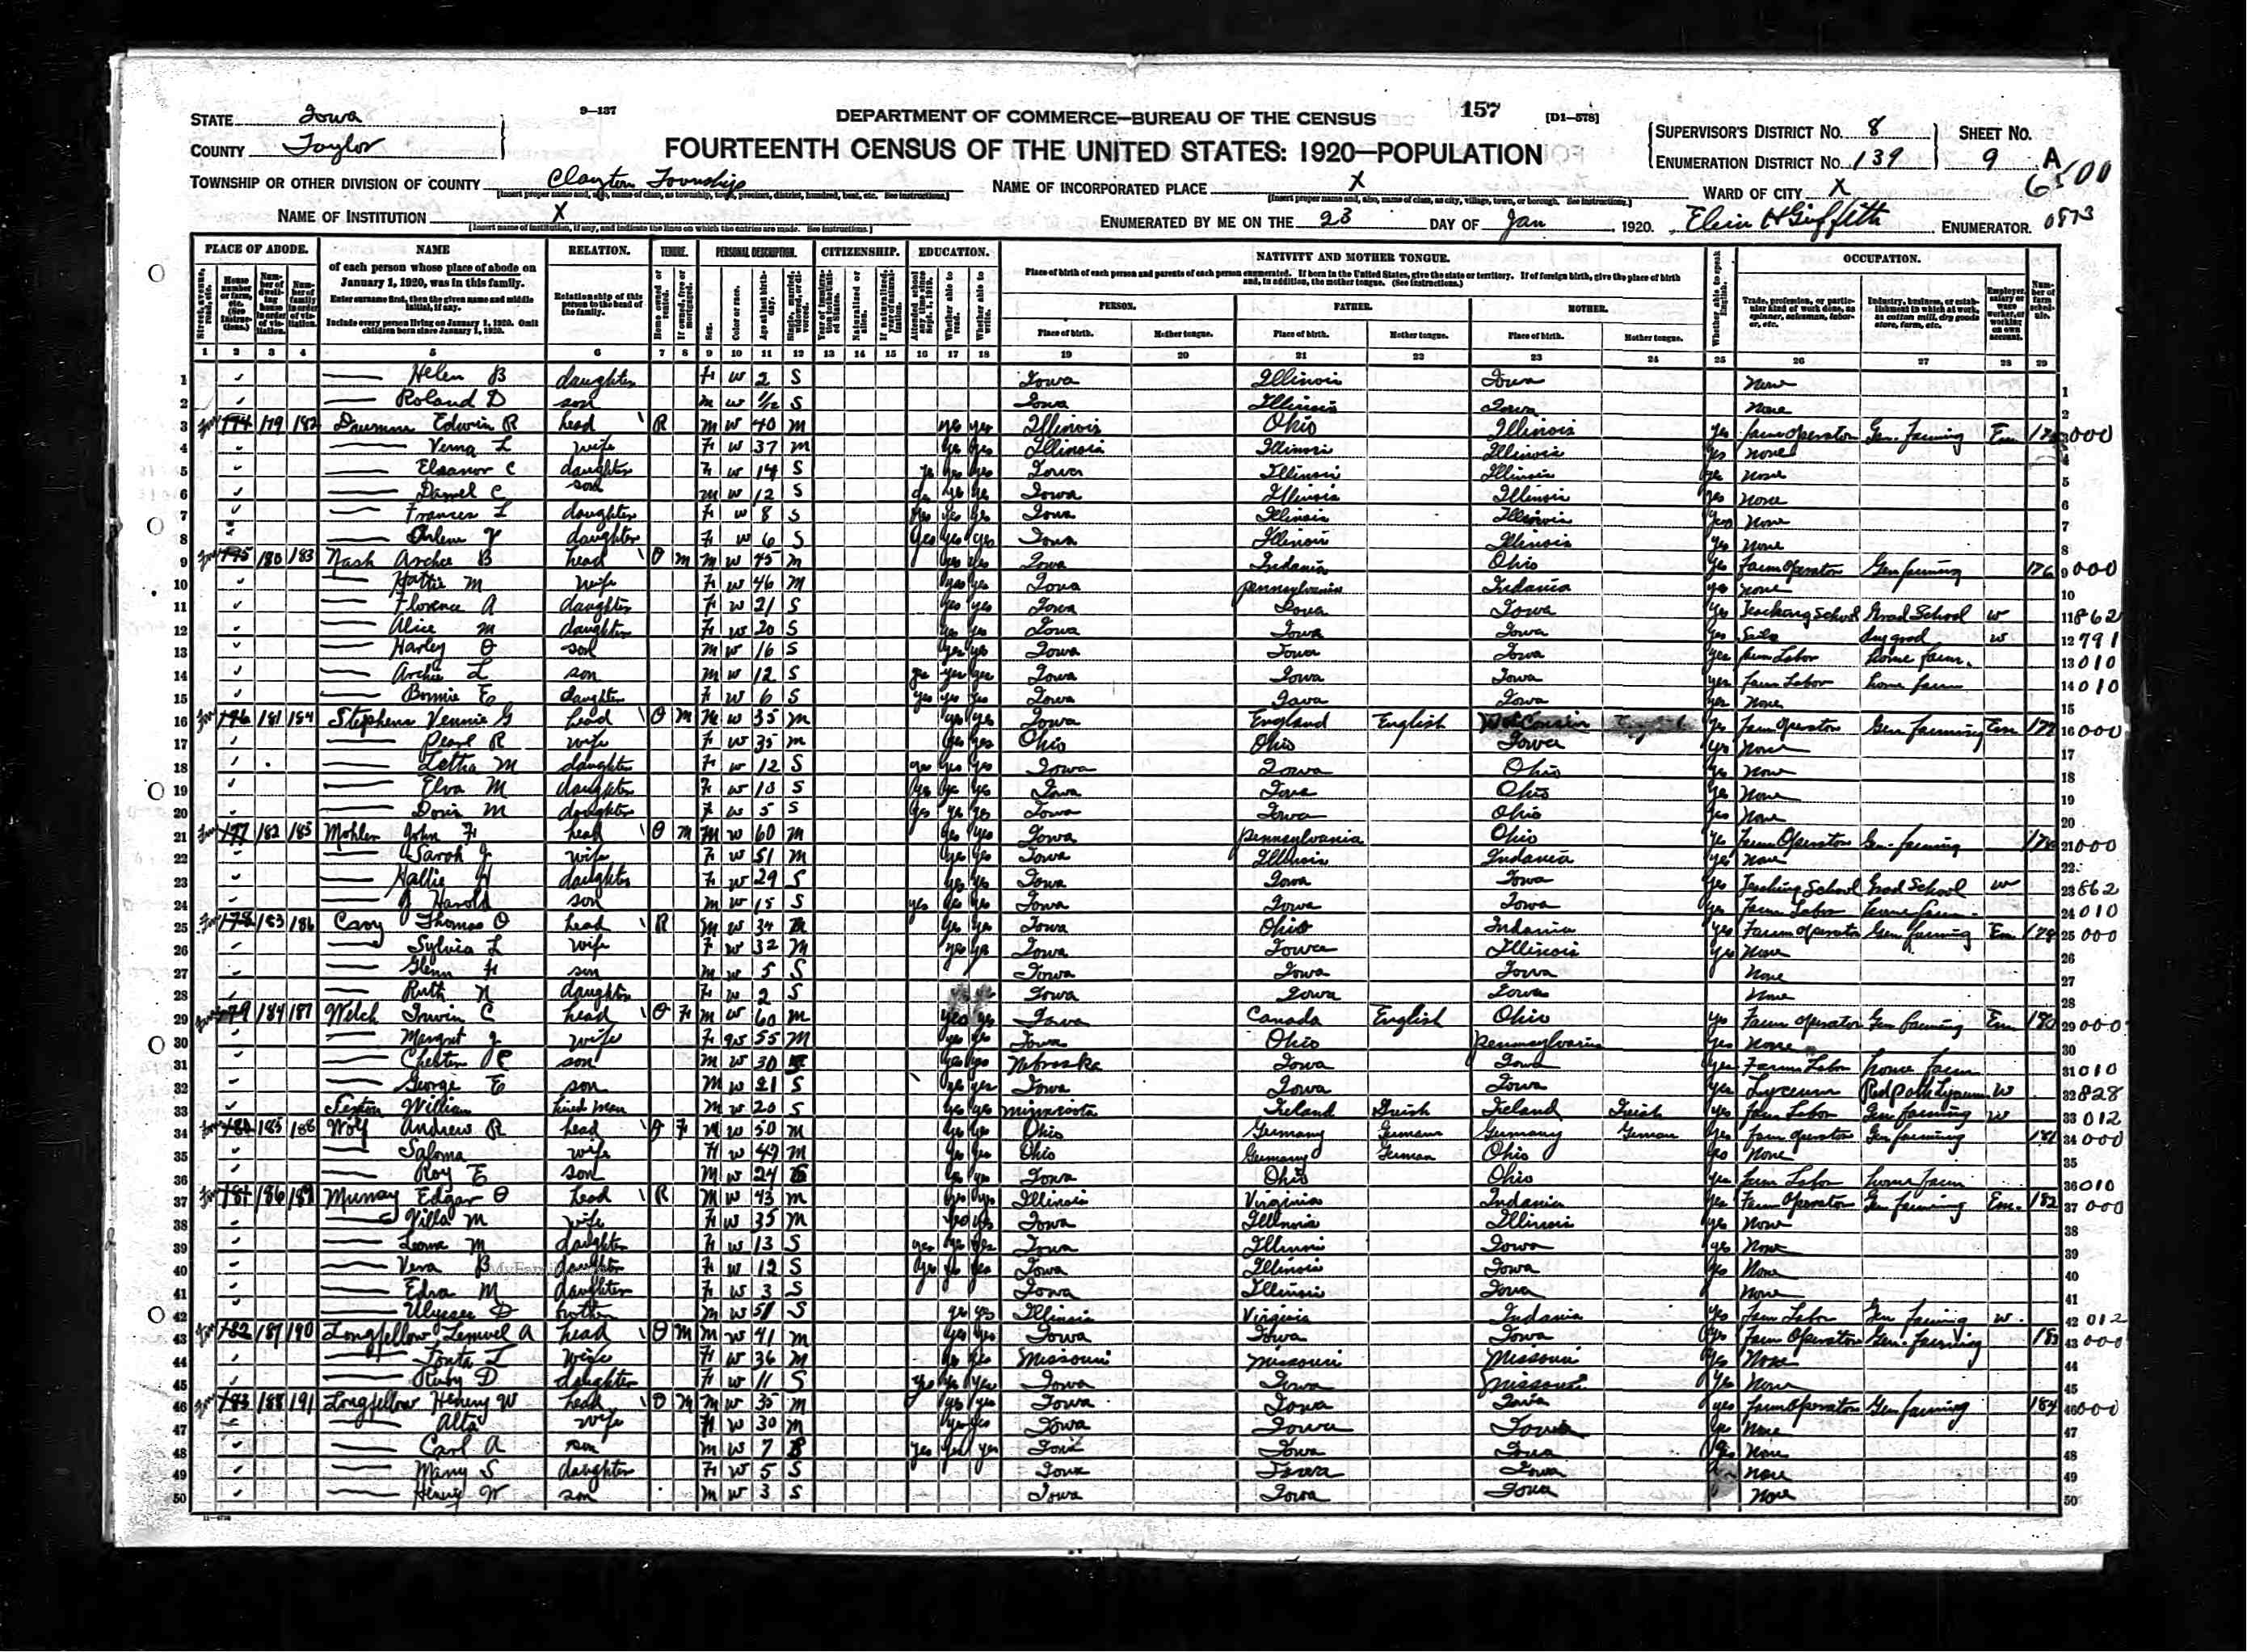 STATE Iowa
9—137
DEPARTMENT OF COMMERCE—BUREAU OF THE CENSUS
157
[D1—578]
COUNTY Taylor
FOURTEENTH CENSUS OF THE UNITED STATES: 1920—POPULATION
SUPERVISOR'S DISTRICT No. 8 SHEET No.
ENUMERATION DISTRICT No. 139 9 A
TOWNSHIP OR OTHER DIVISION OF COUNTY Clayton Township
NAME OF INCORPORATED PLACE X
WARD OF CITY X
NAME OF INSTITUTION X
ENUMERATED BY ME ON THE 23 DAY OF Jan 1920. H Griffith ENUMERATOR. 0873
PLACE OF ABODE. NAME RELATION. TENURE. PERSONAL DESCRIPTION. CITIZENSHIP. EDUCATION. NATIVITY AND MOTHER TONGUE. OCCUPATION.
of each person whose place of abode on January 1, 1920, was in this family.
Enter surname first, then the given name and middle initial, if any.
Include every person living on January 1, 1920. Omit children born since January 1, 1920.
Relationship of this person to the head of the family.
Place of birth of each person and parents of each person enumerated. If born in the United States, give the state or territory. If of foreign birth, give the place of birth and, in addition, the mother tongue. (See instructions.)
PERSON. FATHER. MOTHER.
Place of birth. Mother tongue. Place of birth. Mother tongue. Place of birth. Mother tongue.
1 2 3 4 5 6 7 8 9 10 11 12 13 14 15 16 17 18 19 20 21 22 23 24 25 26 27 28 29
1 Helen B daughter F W 2 S Iowa Illinois Iowa None
2 Roland D son M W S Iowa Illinois Iowa None
3 179 182 Edwin R head R M W 40 M yes yes Illinois Ohio Illinois yes farm operator Gen. farming Em 000
4 Verna L wife F W 37 M yes yes Illinois Illinois Illinois yes none
5 Eleanor C daughter F W 14 S yes yes yes Iowa Illinois Illinois yes none
6 Daniel C son M W 12 S yes yes yes Iowa Illinois Illinois yes none
7 Frances L daughter F W 8 S yes yes yes Iowa Illinois Illinois yes none
8 daughter F W 6 S yes yes yes Iowa Illinois Illinois yes none
9 175 180 183 Nash Archie B head O M M W 45 M yes yes Iowa Indiana Ohio yes Farm Operator Gen farming 176 000
10 Hattie M wife F W 46 M yes yes Iowa Pennsylvania Indiana yes none
11 Florence A daughter F W 21 S yes yes Iowa Iowa Iowa yes Teaching School Grad School W 862
12 Alice M daughter F W 20 S yes yes Iowa Iowa Iowa yes dry good W 791
13 Harley O son M W 16 S yes yes Iowa Iowa Iowa yes farm Labor home farm. 010
14 Archie L son M W 12 S yes yes yes Iowa Iowa Iowa yes farm Labor home farm 010
15 Bonnie E daughter F W 6 S yes yes yes Iowa Iowa Iowa yes none
16 176 181 184 Stephens Vennie G head O M M W 35 M yes yes Iowa England English Wisconsin yes farm operator Gen farming Em 177 000
17 Pearl R wife F W 35 M yes yes Ohio Ohio Iowa yes None
18 Letha M daughter F W 12 S yes yes yes Iowa Iowa Ohio yes None
19 Elva M daughter F W 10 S yes yes yes Iowa Iowa Ohio yes None
20 Doris M daughter F W 5 S yes yes yes Iowa Iowa Ohio yes None
21 177 182 185 Mohler John F head O M M W 60 M yes yes Iowa Pennsylvania Ohio yes Farm Operator Gen. farming 178 000
22 Sarah J wife F W 51 M yes yes Iowa Illinois Indiana yes none
23 Hallie daughter F W 29 S yes yes Iowa Iowa Iowa yes Teaching School Grad School W 862
24 J Harold son M W 15 S yes yes yes Iowa Iowa Iowa yes Farm Labor home farm. 010
25 178 183 186 Cavy Thomas O head R M W 34 M yes yes Iowa Ohio Indiana yes Farm operator Gen farming Em 179 000
26 Sylvia L wife F W 32 M yes yes Iowa Iowa Illinois yes None
27 Glenn F son M W 5 S Iowa Iowa Iowa None
28 Ruth N daughter F W 2 S Iowa Iowa Iowa None
29 179 184 187 Welch Irwin C head O F M W 60 M yes yes Iowa Canada English Ohio yes Farm operator Gen farming Em 180 000
30 Margret J wife F W 55 M yes yes Iowa Ohio Pennsylvania yes None
31 Chester son M W 30 yes yes Nebraska Iowa Iowa yes Farm Labor home farm 010
32 George E son M W 21 S yes yes Iowa Iowa Iowa yes Lyceum Redpath Lyceum W 828
33 Sexton William hired man M W 20 S yes yes Minnesota Ireland Irish Ireland Irish yes farm Labor Gen farming W 012
34 180 185 188 Wolf Andrew R head O F M W 50 M yes yes Ohio Germany German Germany German yes farm operator Gen farming 181 000
35 Saloma wife F W 49 M yes yes Ohio Germany German Ohio yes None
36 Roy E son M W 24 S yes yes Iowa Ohio Ohio yes farm Labor home farm 010
37 181 186 189 Murray Edgar O head R M W 43 M yes yes Illinois Virginia Indiana yes Farm Operator Gen farming Em. 182 000
38 Villa M wife F W 35 M yes yes Iowa Illinois Illinois yes None
39 Leona M daughter F W 13 S yes yes yes Iowa Illinois Iowa yes None
40 Vera B daughter F W 12 S yes yes yes Iowa Illinois Iowa yes None
41 Edna M daughter F W 3 S Iowa Illinois Iowa None
42 Ulysses D brother M W 51 S yes yes Illinois Virginia Indiana yes Farm Labor Gen farming W. 012
43 182 187 190 Longfellow Lemuel A head O M M W 41 M yes yes Iowa Iowa Iowa yes Farm Operator Gen. farming 183 000
44 L wife F W 36 M yes yes Missouri Missouri Missouri yes None
45 Ruby D daughter F W 11 S yes yes yes Iowa Iowa Missouri yes None
46 183 188 191 Longfellow Henery W head O M M W 35 M yes yes Iowa Iowa Iowa yes farm Operator Gen farming 184 000
47 Alta wife F W 30 M yes yes Iowa Iowa Iowa yes None
48 Carl A son M W 7 S yes yes yes Iowa Iowa Iowa yes None
49 Mary S daughter F W 5 S Iowa Iowa Iowa none
50 Henry W son M W 3 S Iowa Iowa Iowa None